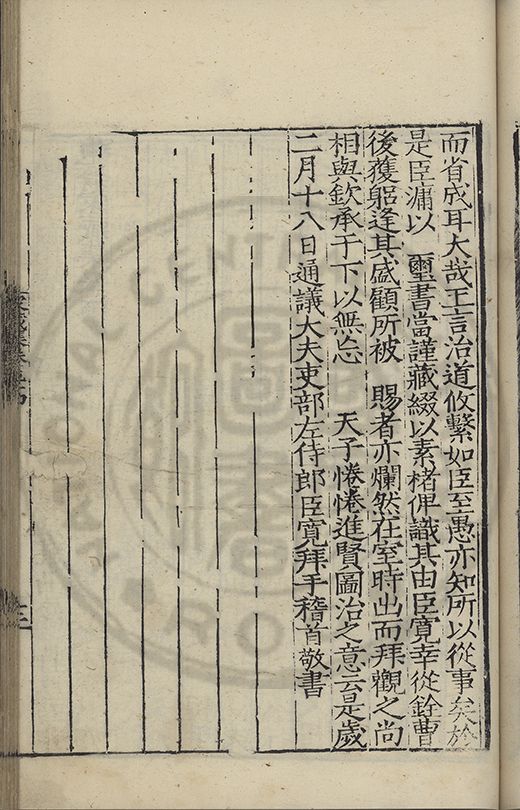 而省成耳大哉王言治道攸繫如臣至愚亦知所以從事矣於
是臣瀟以　璽書當謹藏綴以素楮俾識其由臣寬幸從銓曹
後獲躬逢其盛顧所被　賜者亦爛然在室時出而拜觀之尚
相與欽承于下以無忘　天子惓惓進賢圖治之意云是歲
二月十八日通議大夫吏部左侍郎臣寬拜手稽首敬書